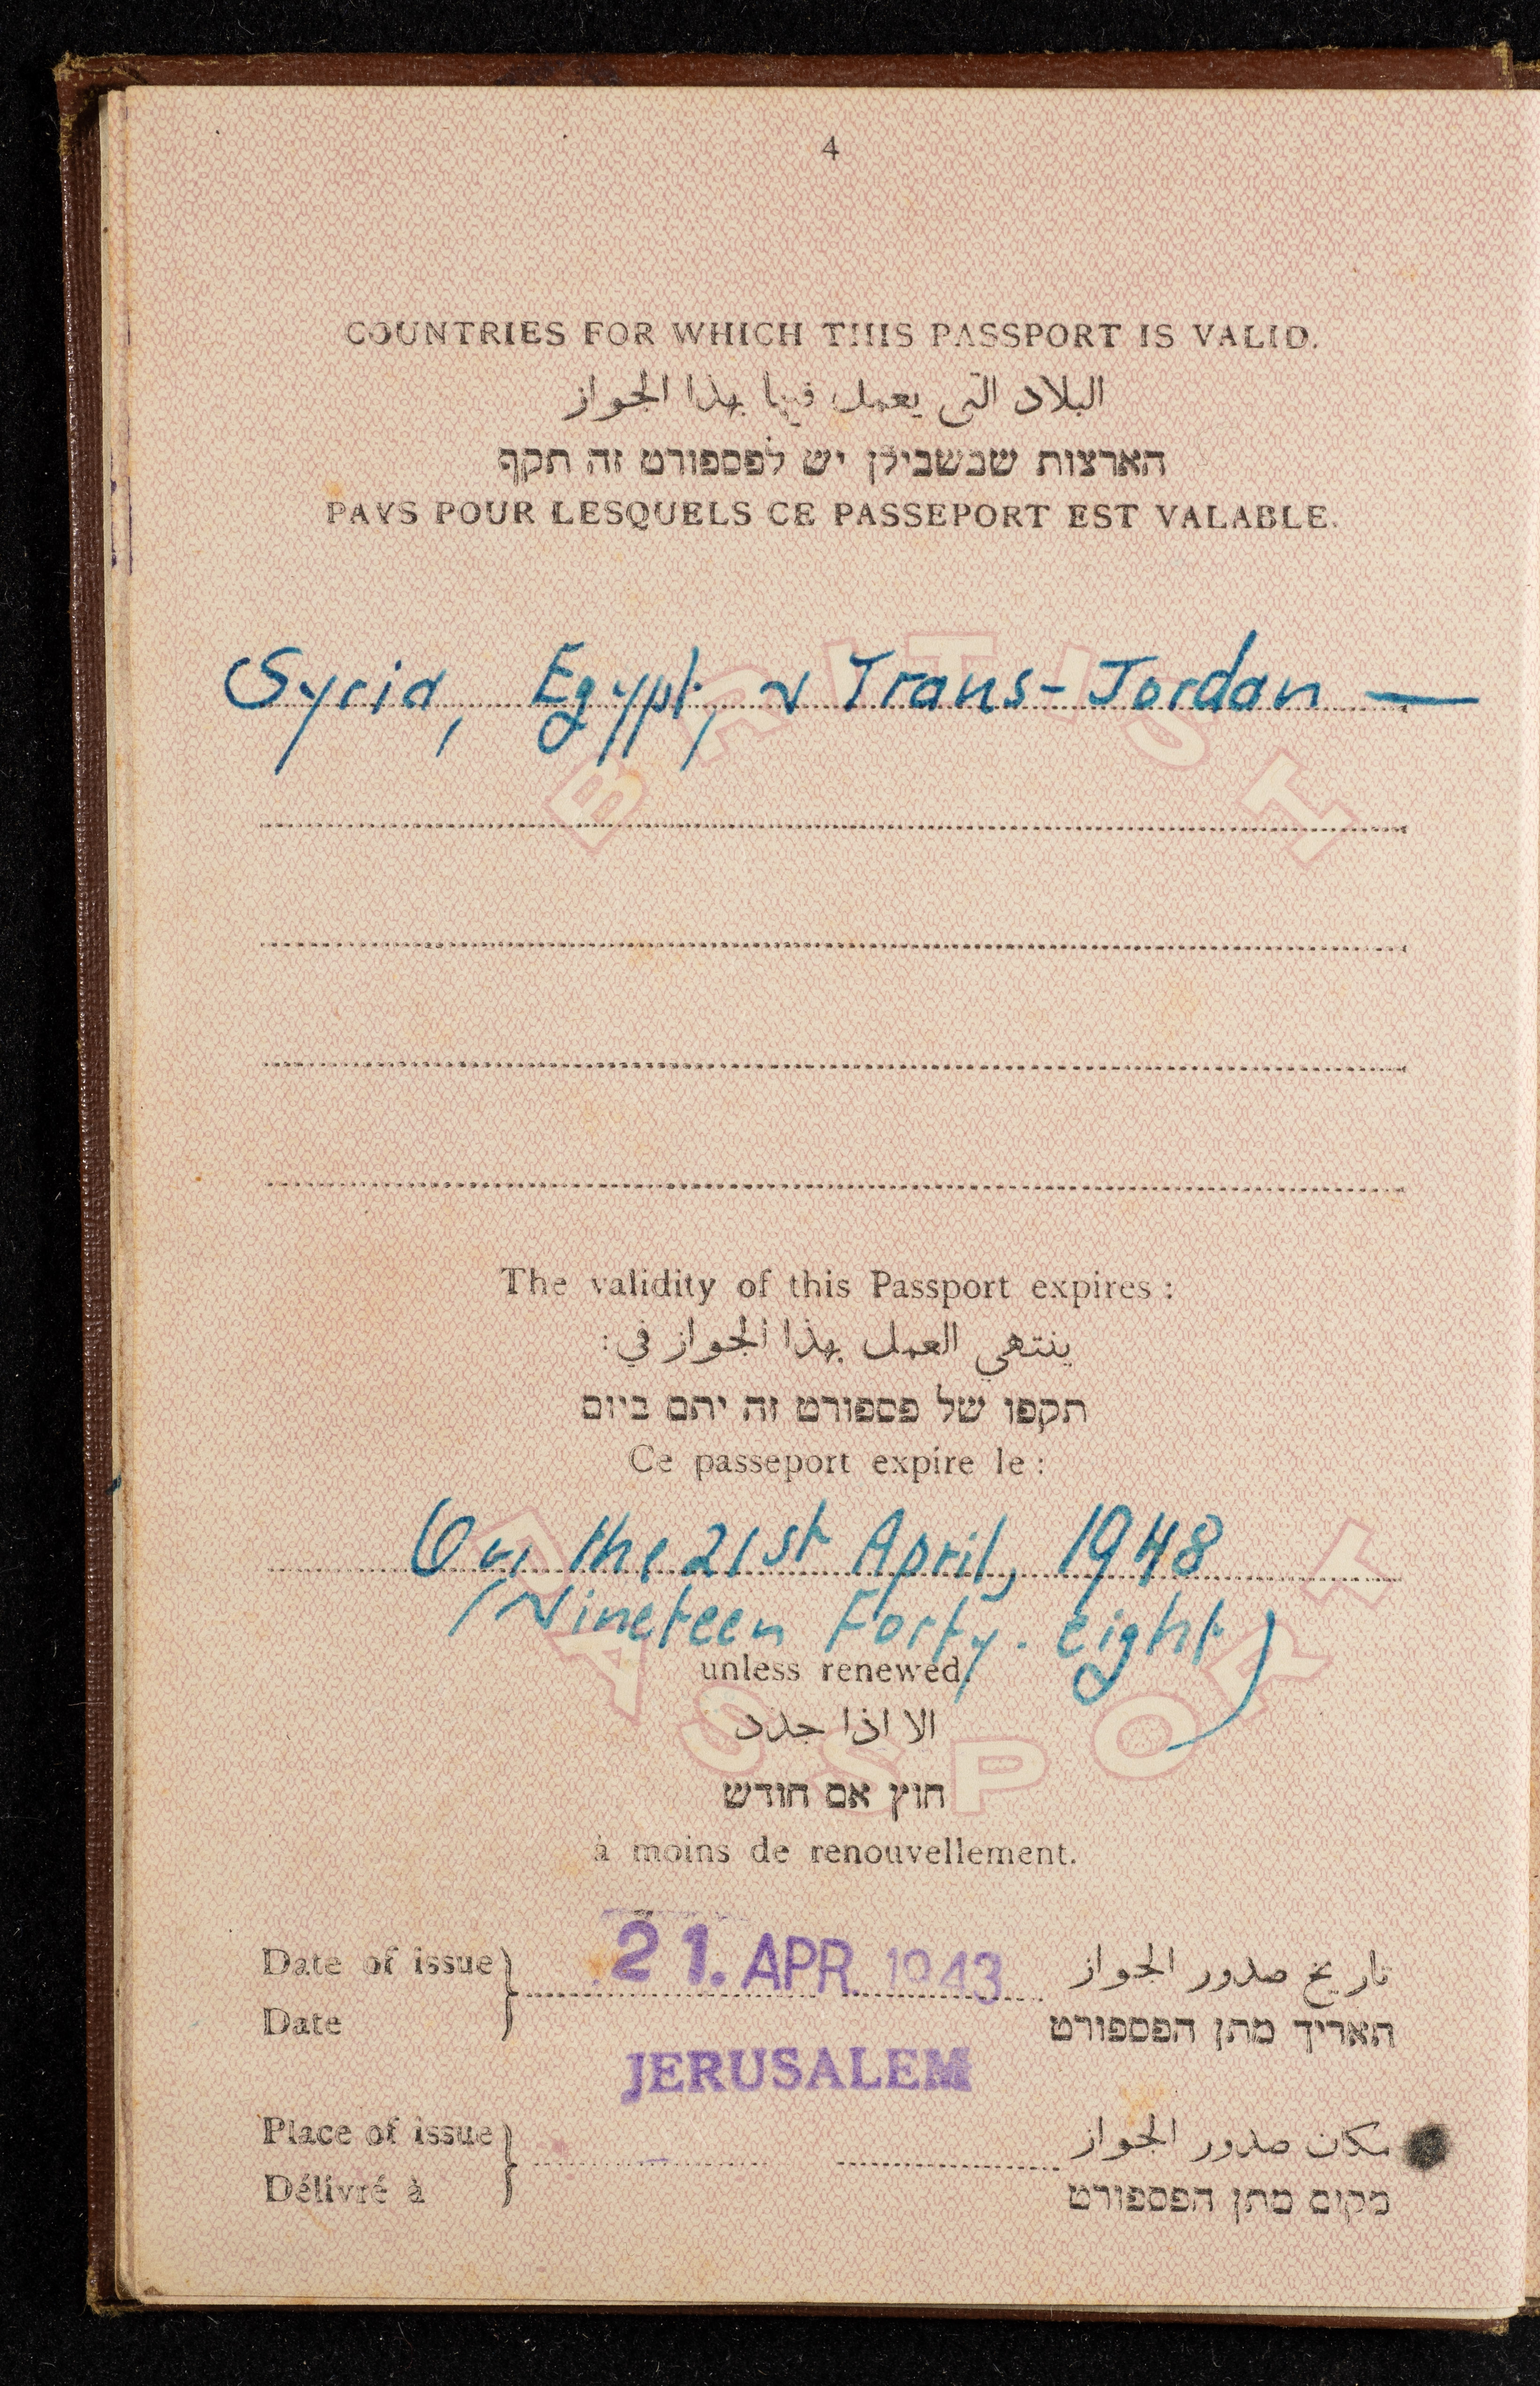 4
COUNTRIES FOR WHICH THIS PASSPORT IS VALID.
البلاد التى يعمل فيها بهذا الجواز
הארצות שבשבילן יש לפספורט זה תקף
PAYS POUR LESQUELS CE PASSEPORT EST VALABLE.
Syria, Egypt, & Trans-Jordan —
BRITISH
The validity of this Passport expires :
ينتهي العمل بهذا الجواز في :
תקפו של פספורט זה יתם ביום
Ce passeport expire le :
On the 21st April, 1948
(Nineteen Forty-eight)
unless renewed.
الا اذا جدد
חוץ אם חודש
à moins de renouvellement.
PASSPORT
Date of issue 21. APR. 1943 تاريخ صدور الجواز
Date תאריך מתן הפספורט
JERUSALEM
Place of issue مكان صدور الجواز
Délivré à מקום מתן הפספורט